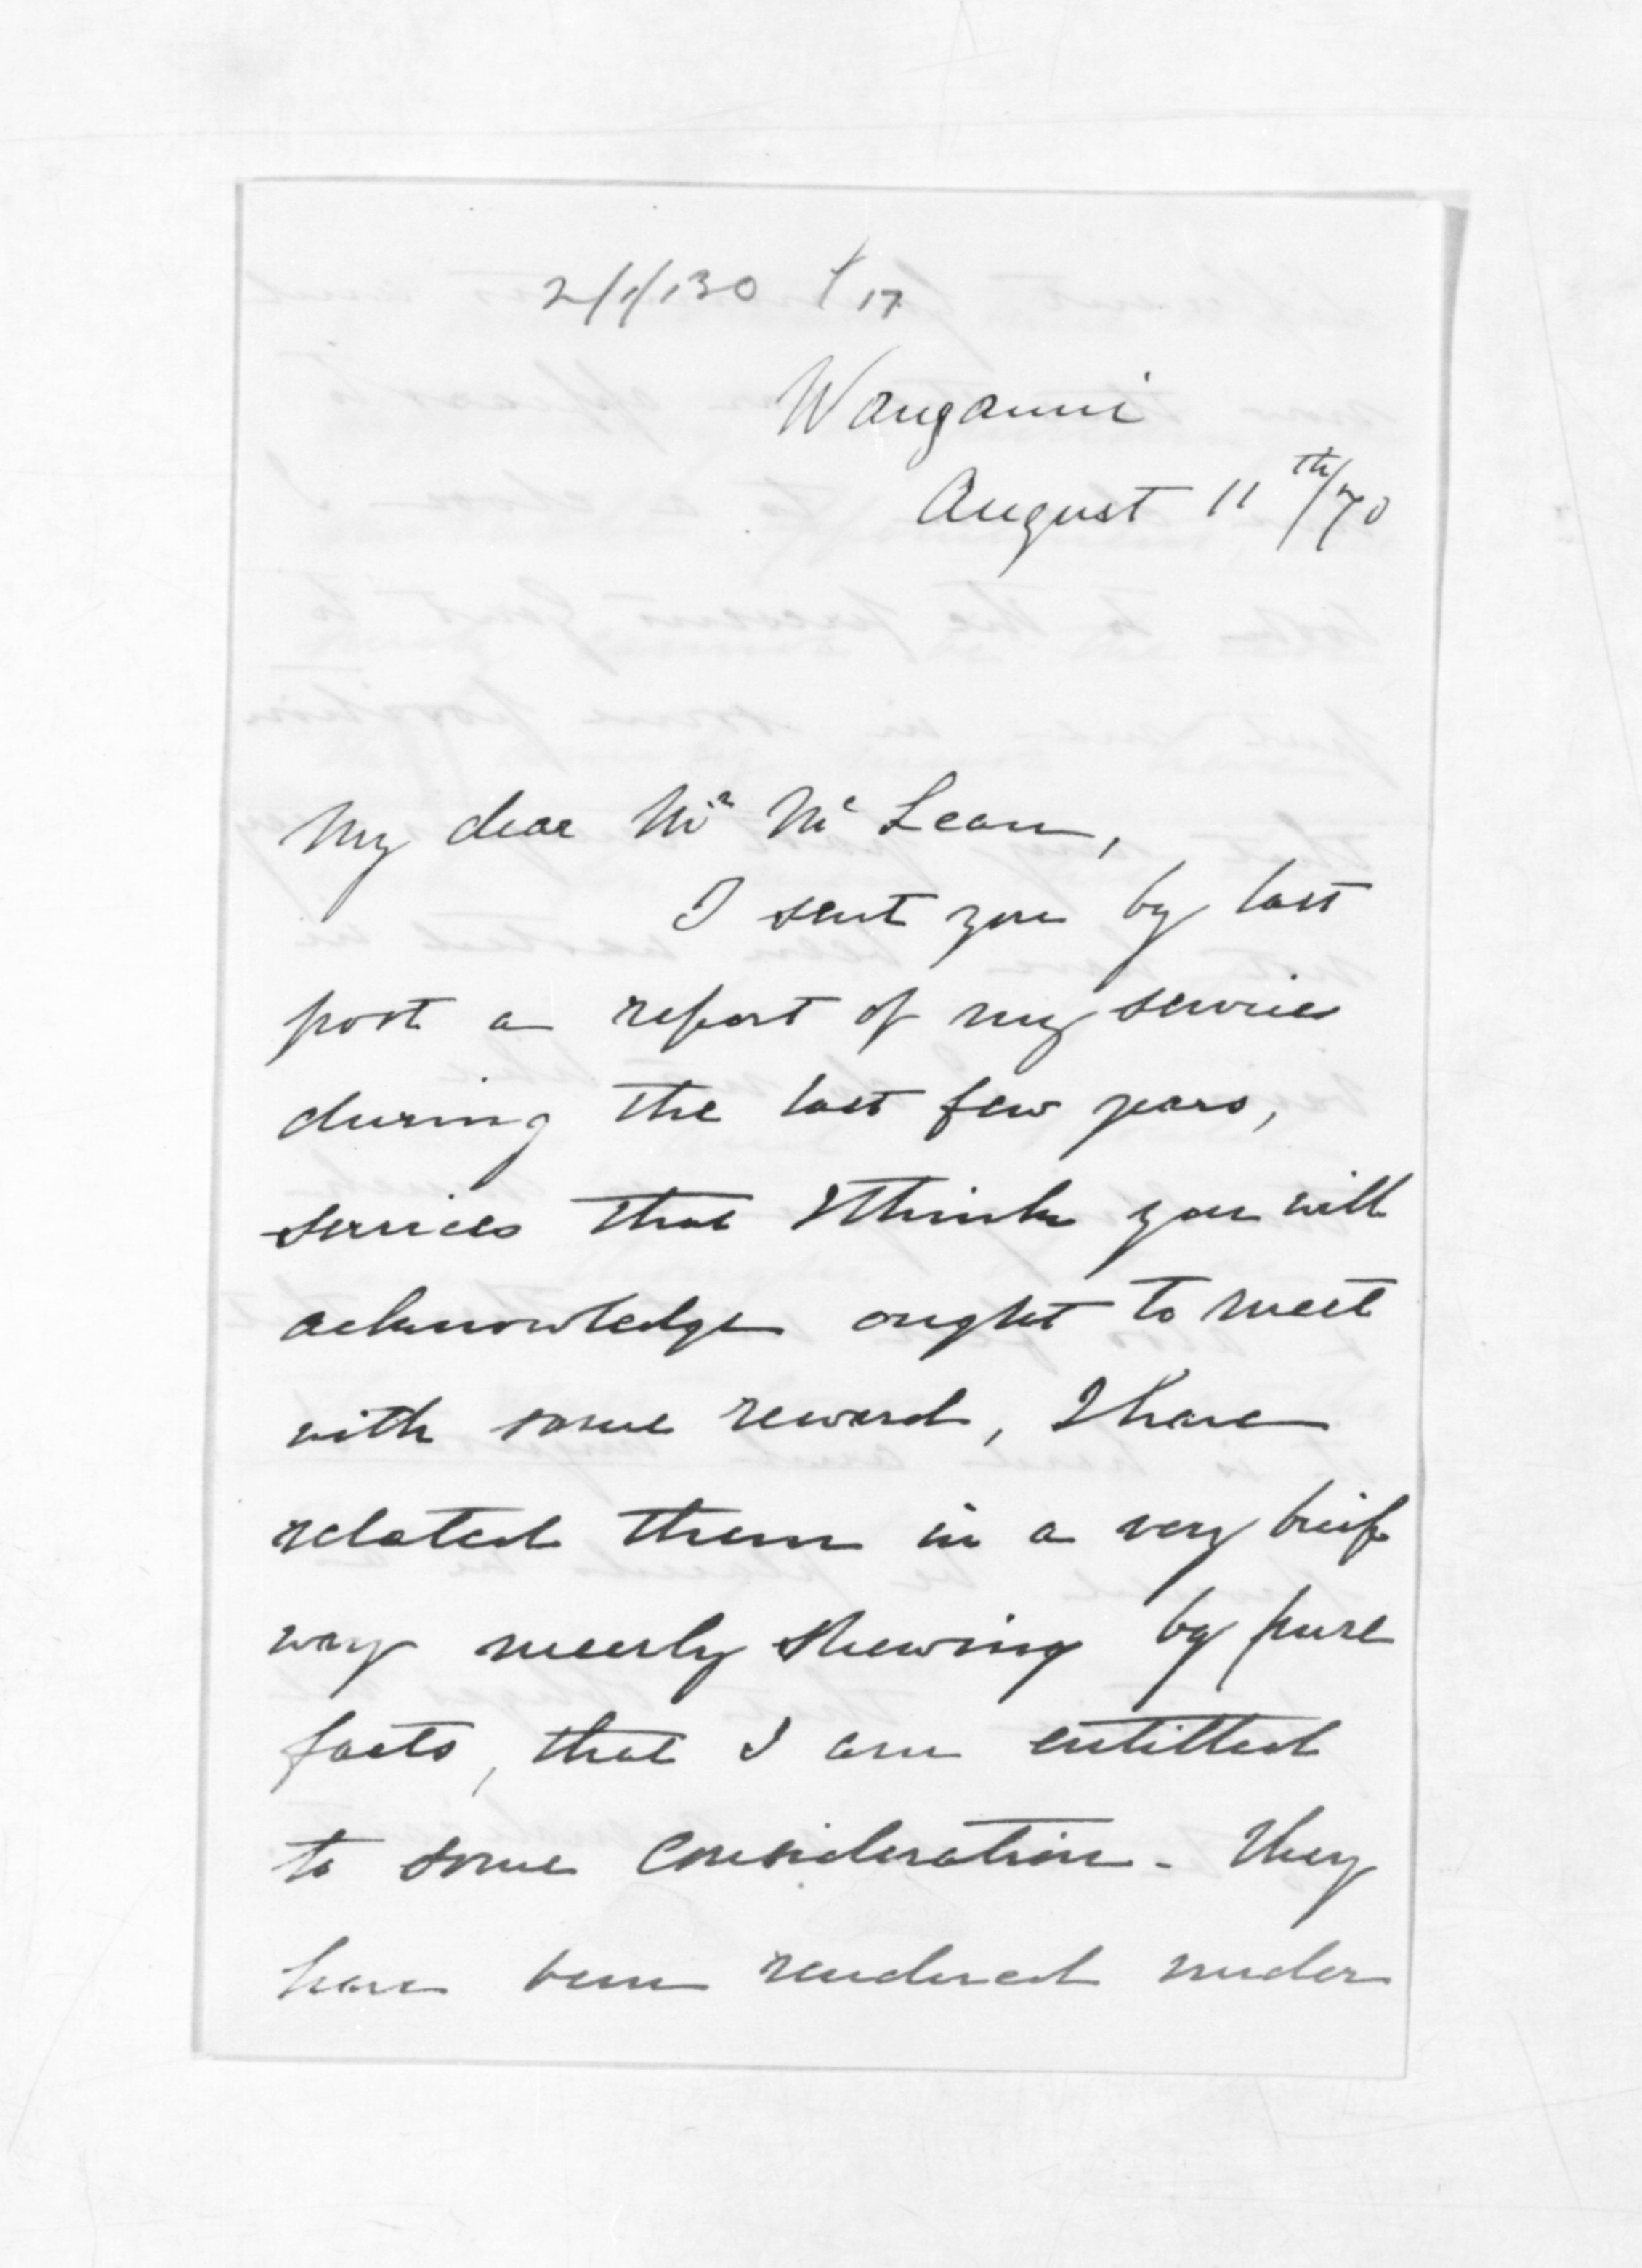 2/1/130 17
Wanganui
August 11th/70
My dear Mr McLean,
I sent you by last
post a report of my services
during the last few years,
services that I think you will
acknowledge ought to meet
with some reward, I have
related them in a very breif
way meerly shewing by pure
facts, that I am entitled
to some consideration - They
have been rendered under